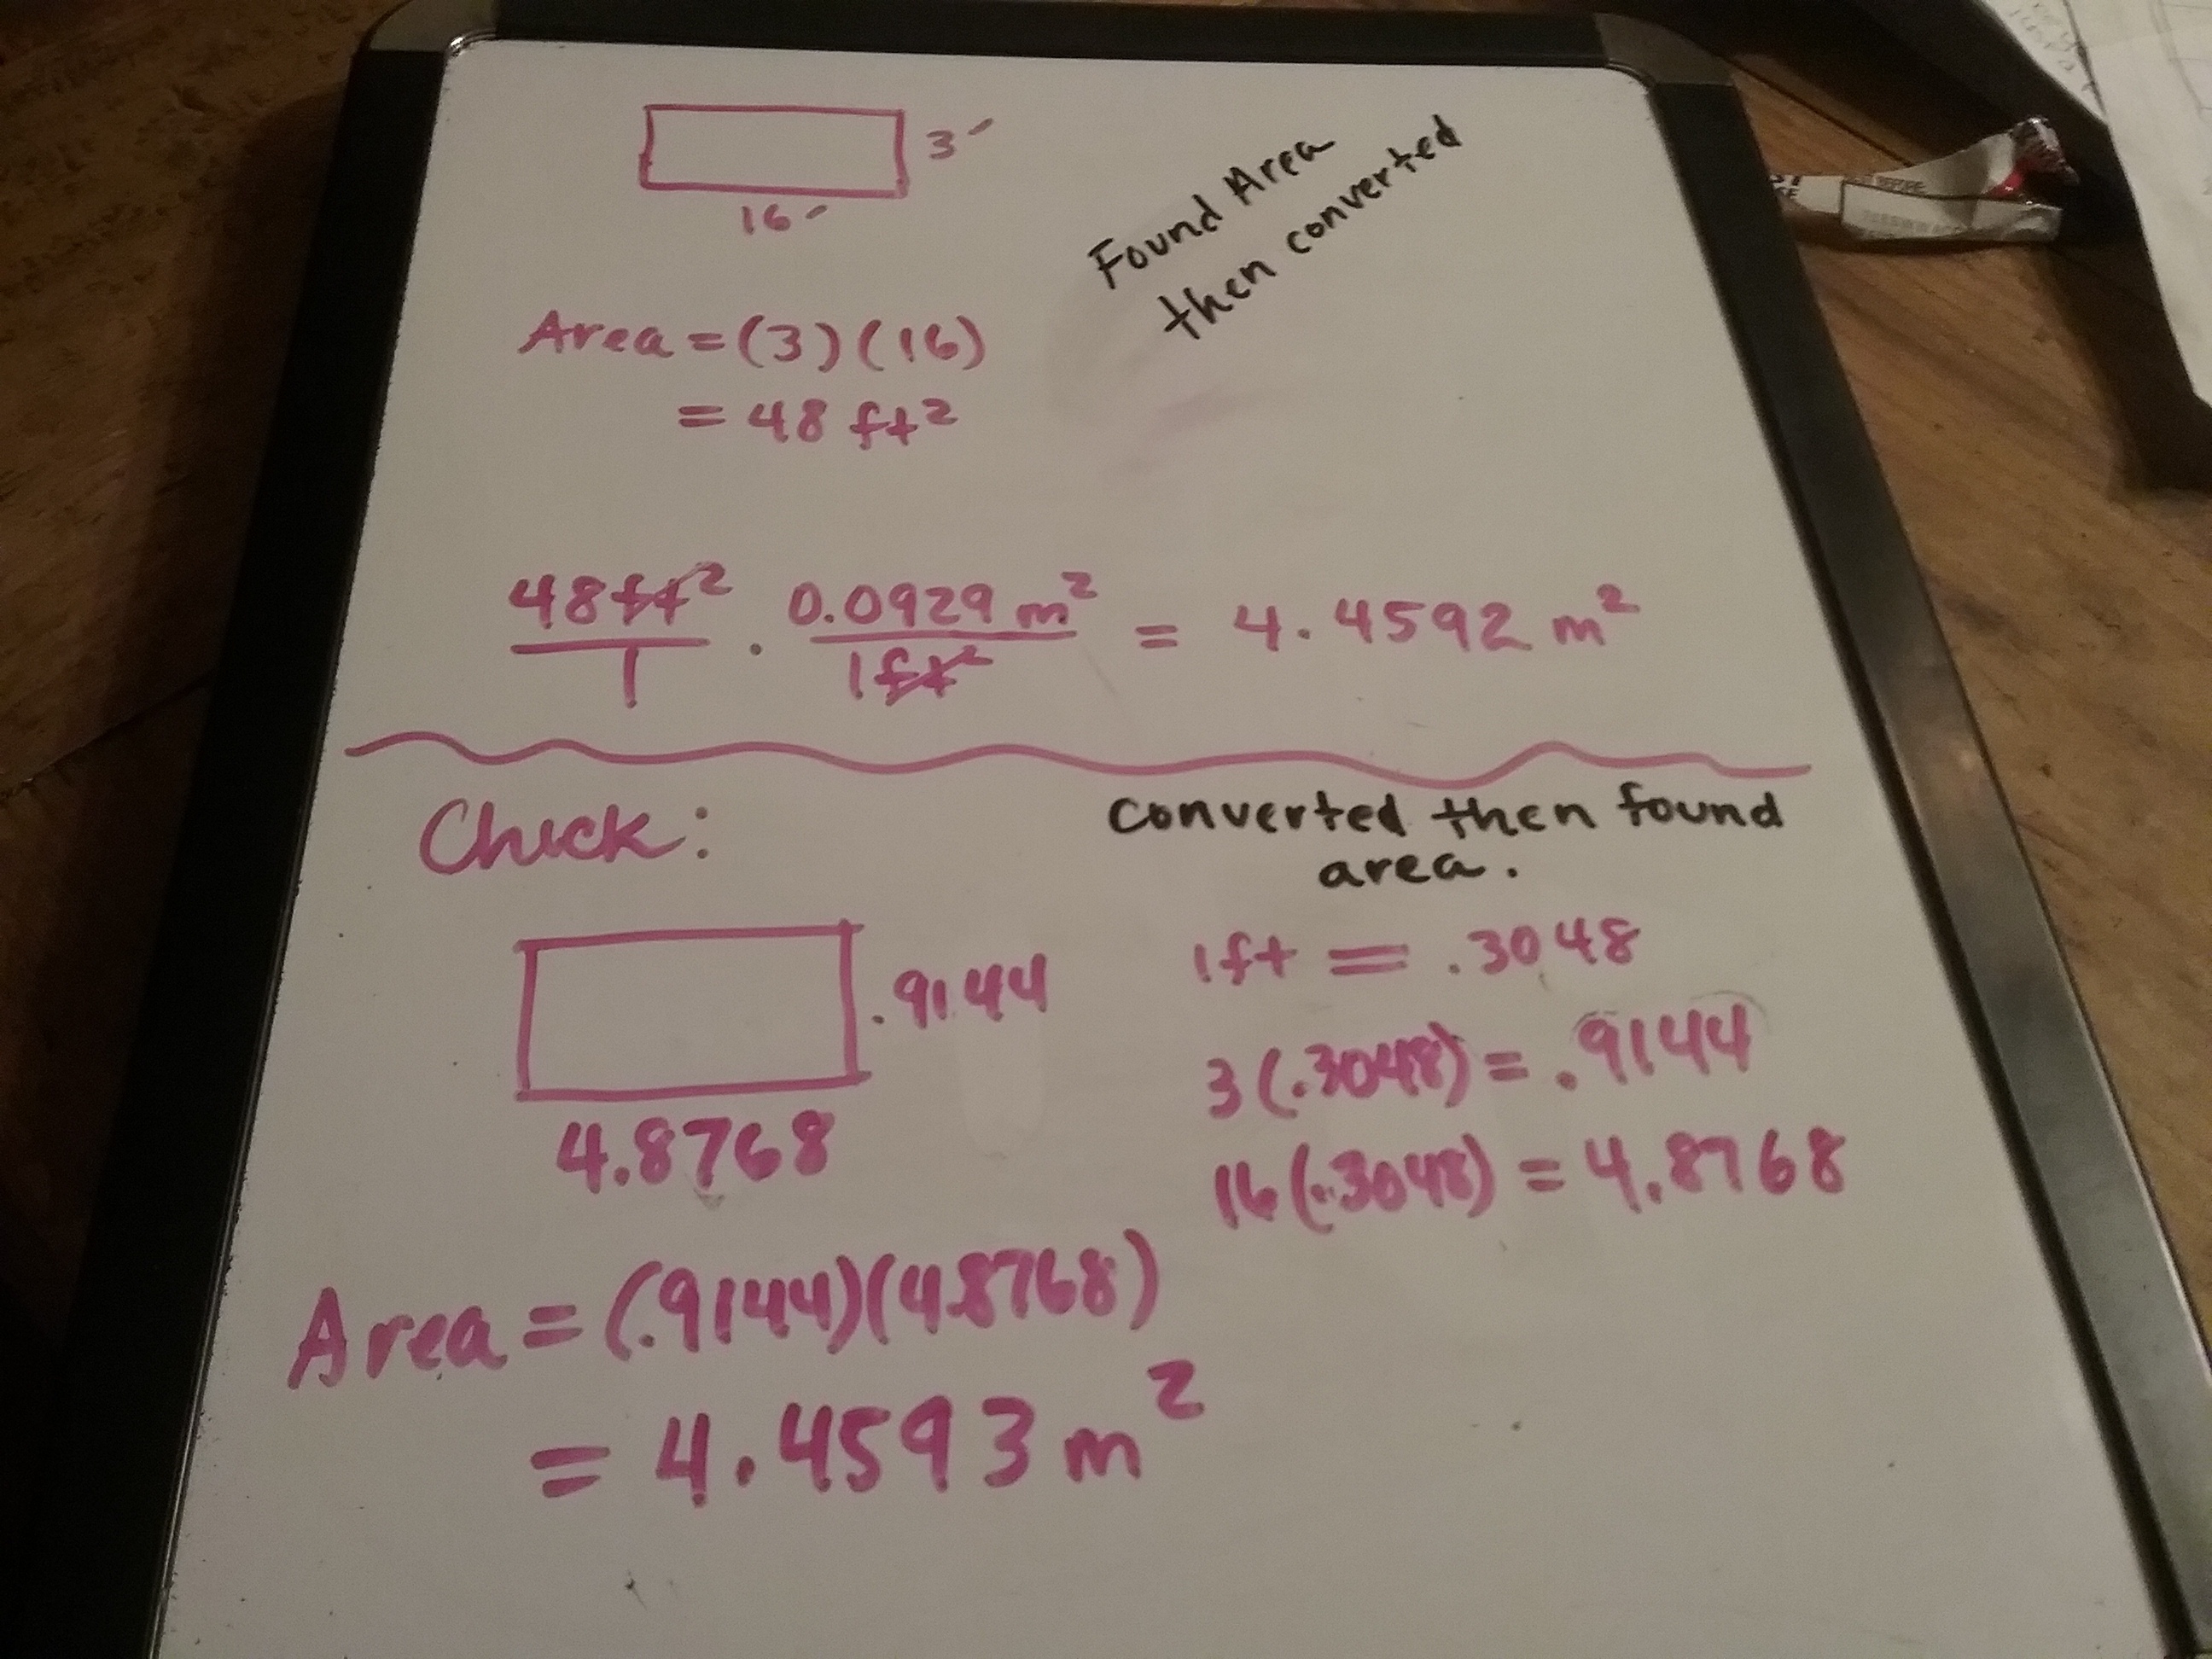 3'
16'
Found Area
then converted
Area = (3)(16)
= 48 ft²
48ft²/1 · 0.0929 m²/1ft² = 4.4592 m²
Check:
Converted then found
area.
.9144
4.8768
1ft = .3048
3(.3048) = .9144
16(.3048) = 4.8768
Area = (.9144)(4.8768)
= 4.4593 m²